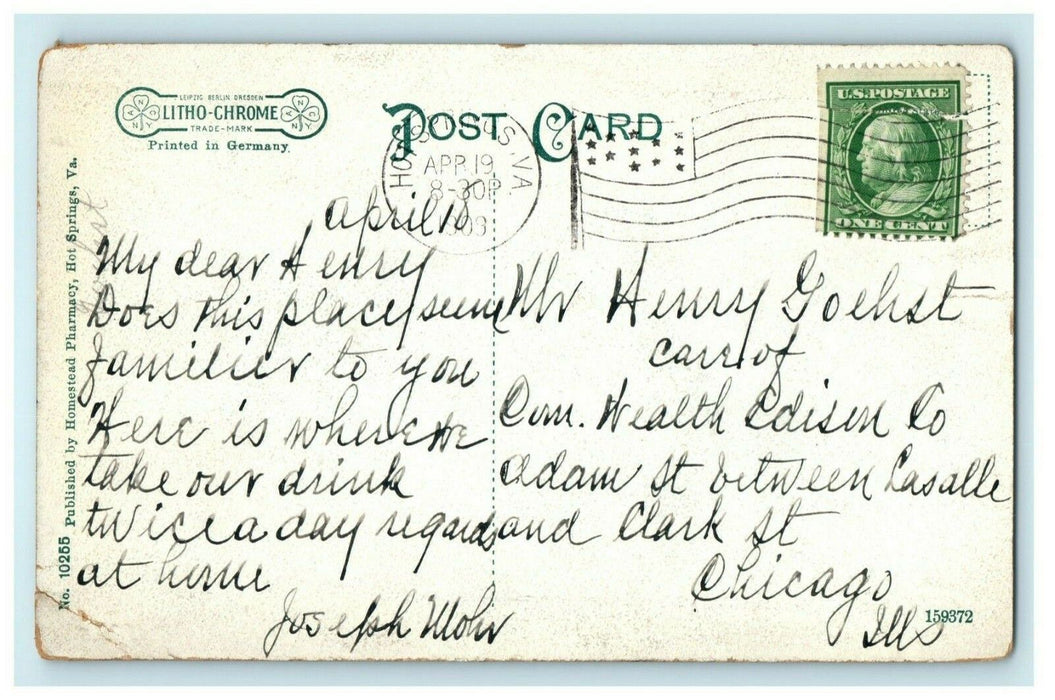 LEIPZIG BERLIN DRESDEN
LITHO-CHROME
TRADE-MARK
Printed in Germany.
POST CARD
HOT SPRINGS VA
APR 19
8-30P
U.S. POSTAGE
ONE CENT
No. 10255 Published by Homestead Pharmacy, Hot Springs, Va.
April 18
My dear Henry
Does this place seem
familier to you
Here is where we
take our drink
twice a day regards
at home
Joseph Mohr
Mr Henry Goehst
care of
Com. Wealth Edison Co
Adam St between Lasalle
and Clark St
Chicago
Ills
159372